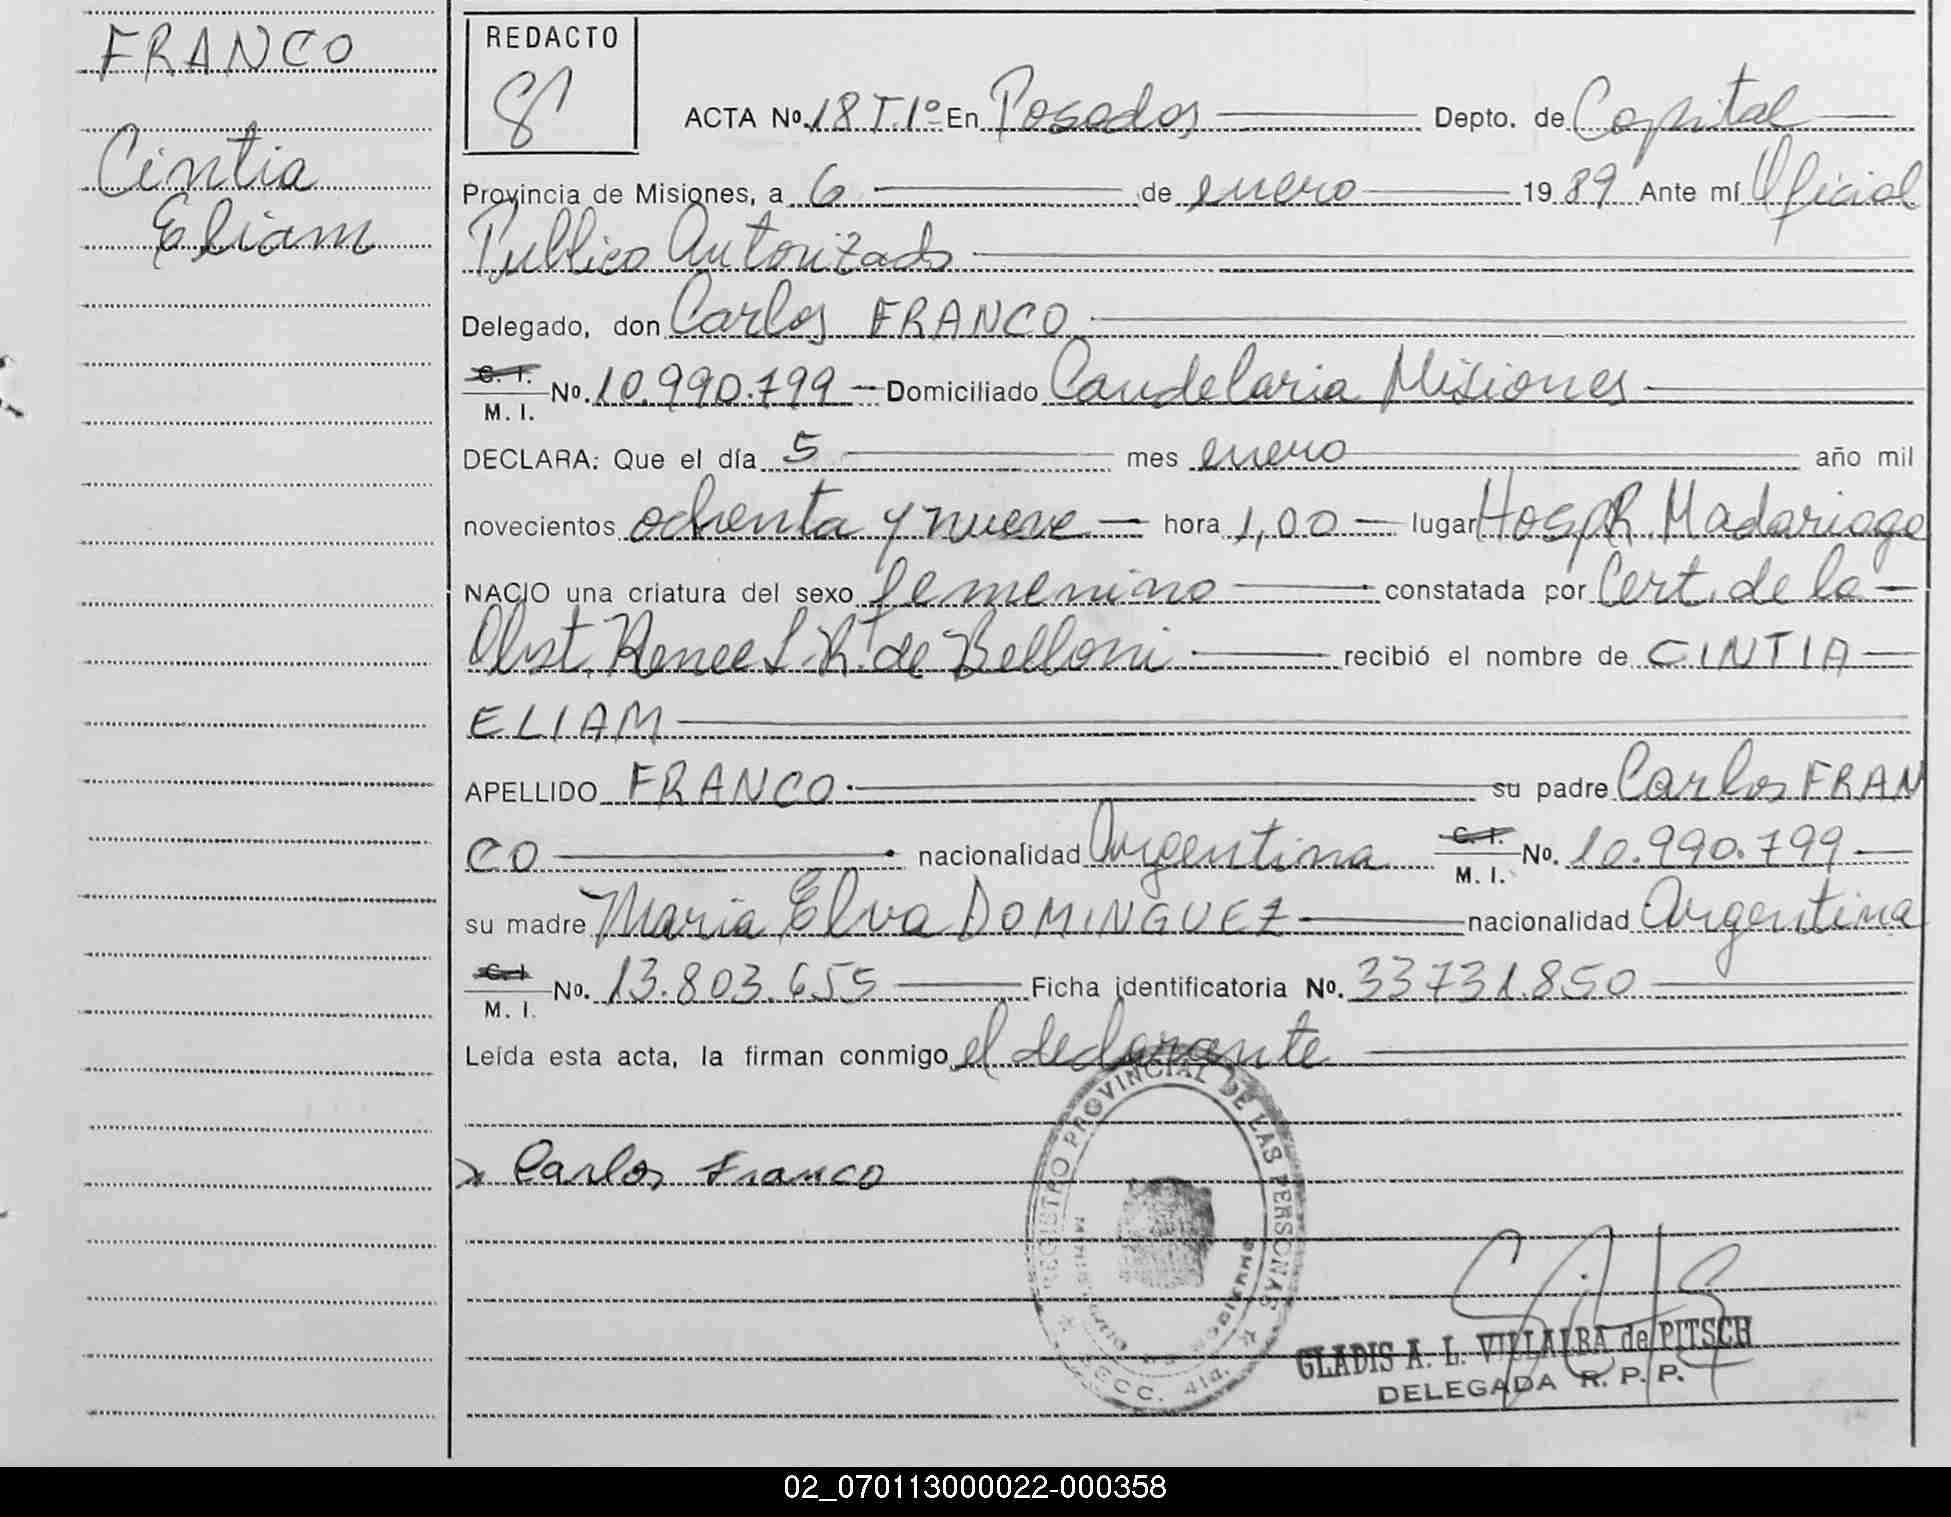 FRANCO
Cintia
Eliam
REDACTO
ACTA Nº. 18 T.1º En Posadas Depto. de Capital
Provincia de Misiones, a 6 de enero 1989 Ante mí Oficial
Publico Autorizado
Delegado, don Carlos FRANCO
C. I.
M. I. Nº. 10.990.799 Domiciliado Candelaria Misiones
DECLARA: Que el día 5 mes enero año mil
novecientos ochenta y nueve hora 1,00 lugar Hosp. R. Madariaga
NACIO una criatura del sexo femenino constatada por Cert. de la
Obst. Renee L. R. de Belloni recibió el nombre de CINTIA
ELIAM
APELLIDO FRANCO su padre Carlos FRAN
CO nacionalidad Argentina C. I. M. I. Nº. 10.990.799
su madre Maria Elva DOMINGUEZ nacionalidad Argentina
C. I. M. I. Nº. 13.803.655 Ficha identificatoria Nº. 33731.850
Leída esta acta, la firman conmigo el declarante
REGISTRO PROVINCIAL DE LAS PERSONAS
MINISTERIO DE GOBIERNO
SECC. 414.
x Carlos Franco
GLADIS A. L. VILLALBA de PITSCH
DELEGADA R. P. P.
02_070113000022-000358